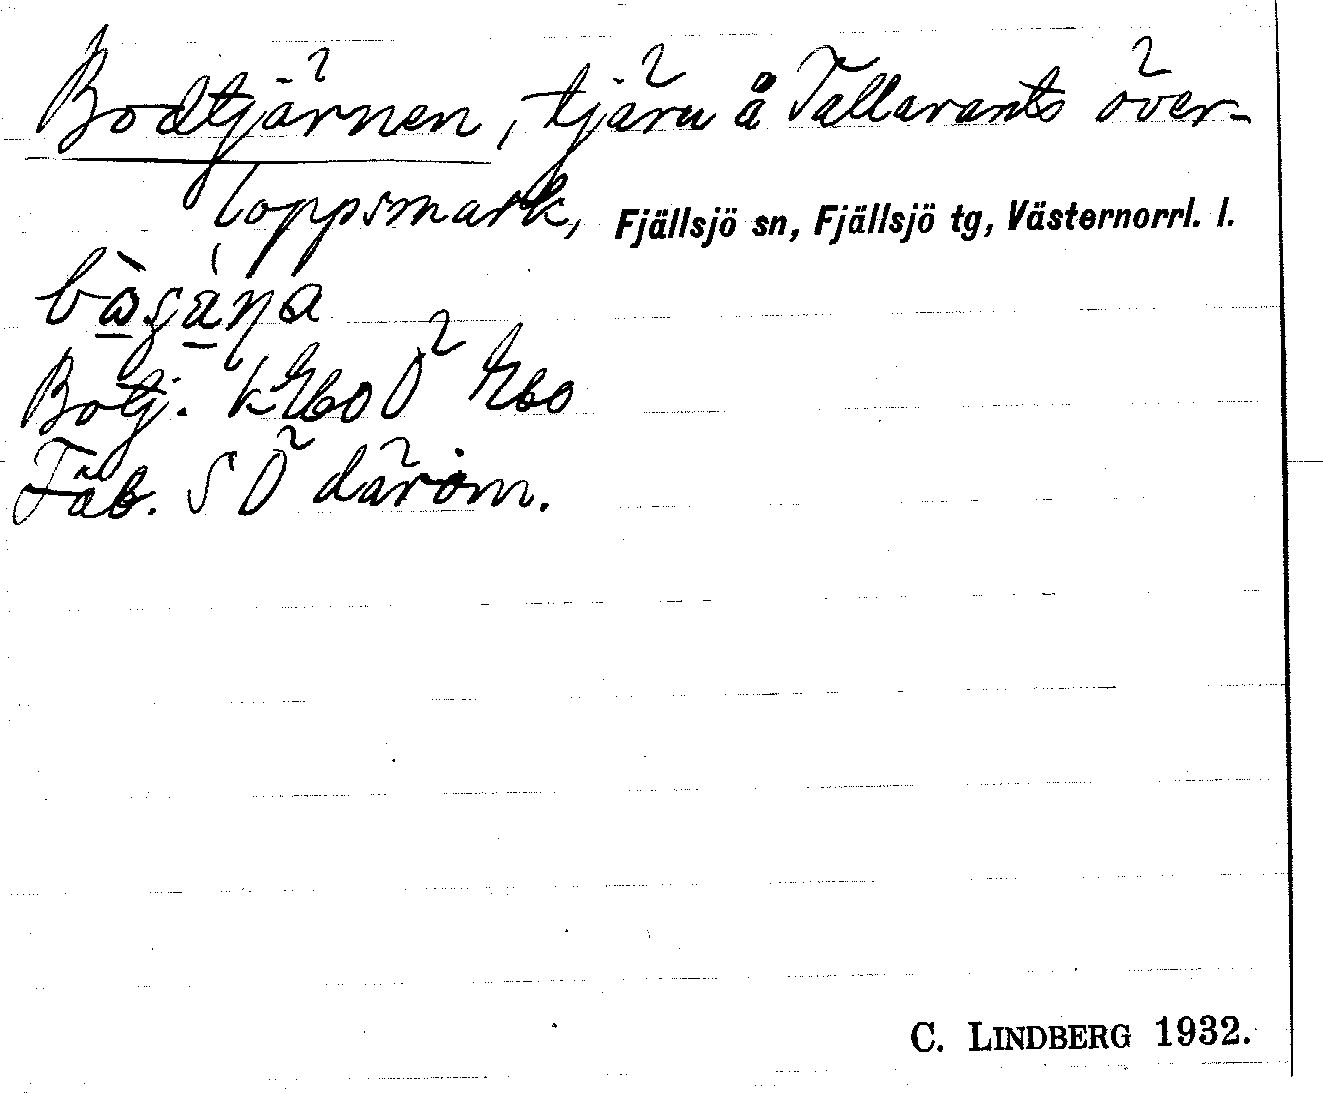 Bodtjärnen, tjärn å Tallarants över-
loppsmark, Fjällsjö sn, Fjällsjö tg, Västernorrl. l.
Botj. kEbo Ö Ebo
Fäb. SÖ därom.
C. LINDBERG 1932.